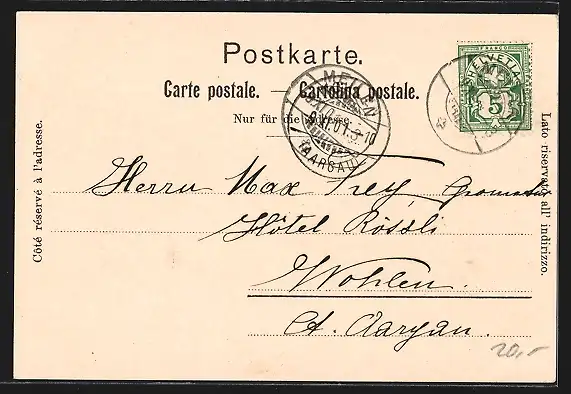 Postkarte.
Carte postale. — Cartolina postale.
Nur für die Adresse.
Côté réservé à l'adresse.
Lato riservato all' indirizzo.
FRANCO
HELVETIA
5
(AARGAU)
Herrn Max Frey,
Hôtel Rössli
Wohlen.
Ct. Aargau.
20,-